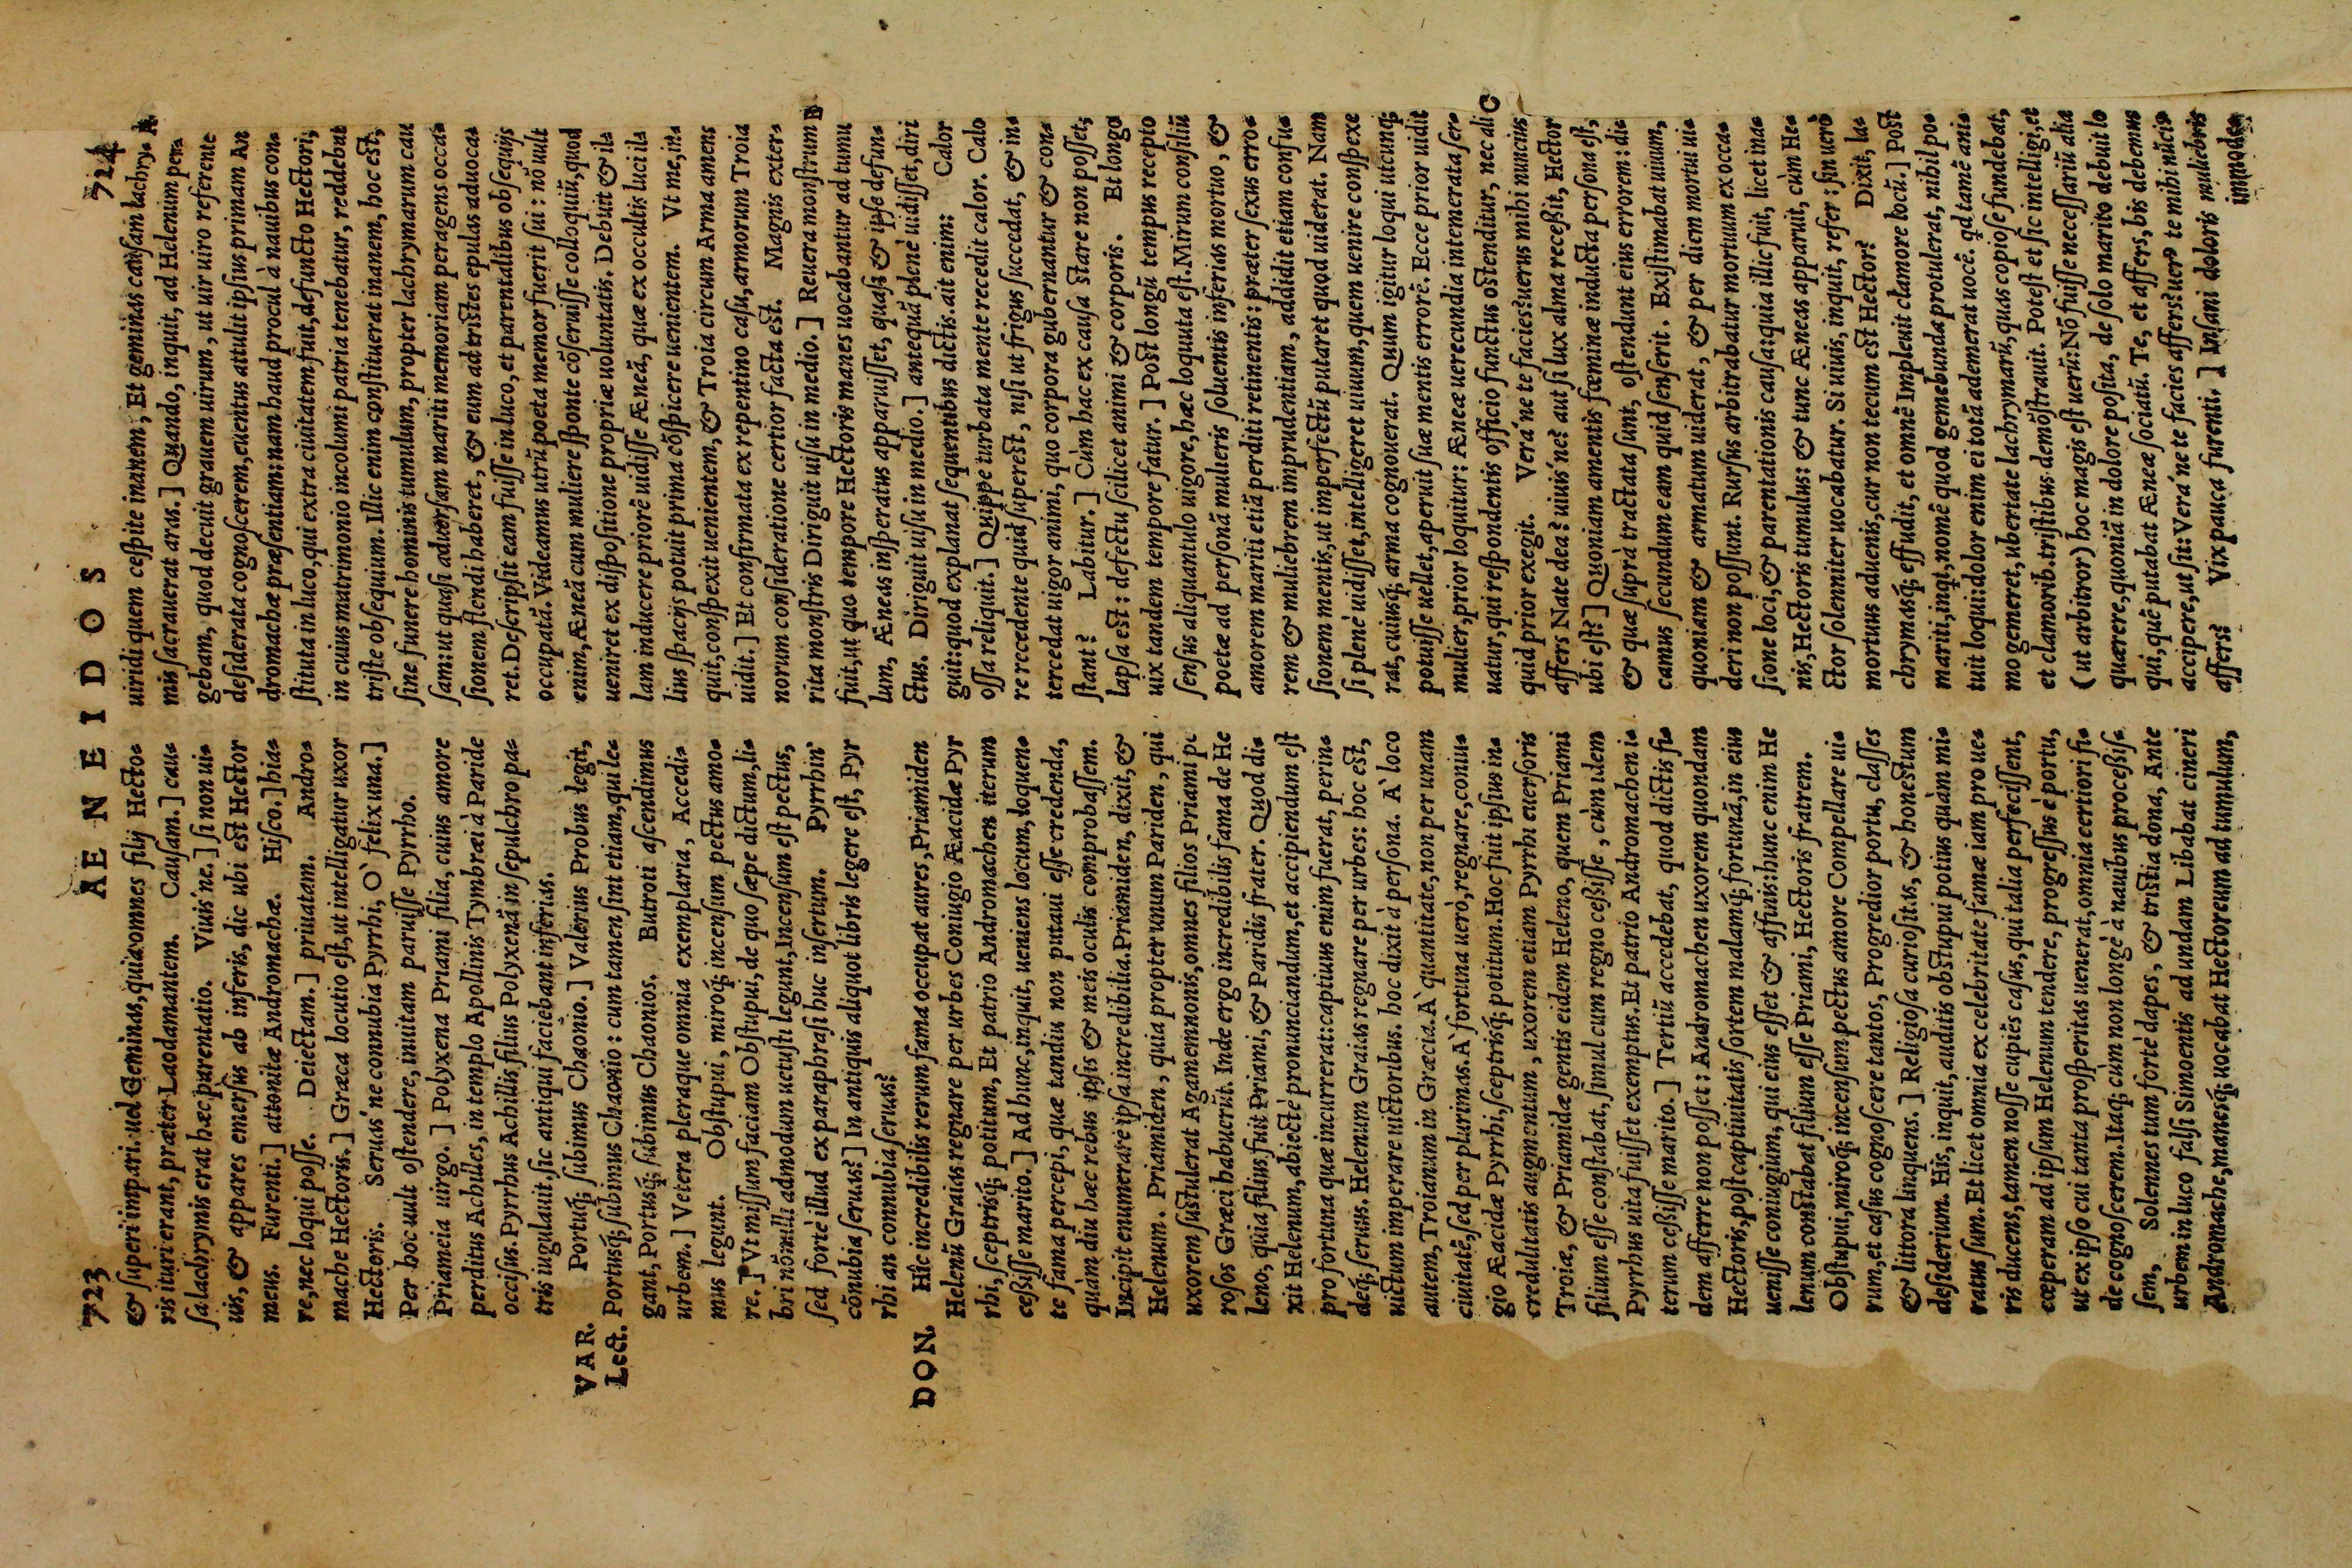 723
AENEIDOS
724
& ſuperi impari. uel Geminas, quia omnes filij Hecto-
ris ituri erant, præter Laodamantem. Cauſam.] cau-
ſa lachrymis erat hæc parentatio. Viuis'ne.] ſi non ui-
uis, & appares emerſus ab inferis, dic ubi est Hector
meus. Furenti.] attonitæ Andromachæ. Hiſco.] hia-
re, nec loqui poſſe. Deiectam.] priuatam. Andro-
mache Hectoris.] Græca locutio eſt, ut intelligatur uxor
Hectoris. Seruas'ne connubia Pyrrhi, O felix una.]
Per hoc uult oſtendere, inuitam paruiſſe Pyrrho.
Priameia uirgo.] Polyxena Priami filia, cuius amore
perditus Achilles, in templo Apollinis Tymbræi à Paride
occiſus. Pyrrhus Achillis filius Polyxenã in ſepulchro pa-
tris iugulauit. ſic antiqui faciebant inferias.
VAR.
Lect.
Portuq́; ſubimus Chaonio.] Valerius Probus legit,
Portusq́; ſubimus Chaonio: cum tamen ſint etiam, qui le-
gant, Portusq́; ſubimus Chaonios. Butroti aſcendimus
urbem.] Vetera pleraque omnia exemplaria, Accedi-
mus legunt. Obſtupui, miroq́; incenſum pectus amo-
re.] Vt miſſum faciam Obſtupui, de quo ſæpe dictum, li-
bri nõnulli admodum uetuſti legunt, Incenſum eſt pectus,
ſed fortè illud ex paraphraſi huc inſertum. Pyrrhin'
cõnubia ſeruas?] In antiquis aliquot libris legere eſt, Pyr
rhi an connubia ſeruas?
DON.
Hîc incredibilis rerum fama occupat aures, Priamiden
Helenũ Graias regnare per urbes Coniugio Æacidæ Pyr
rhi, ſceptrisq́; potitum, Et patrio Andromachen iterum
ceſiſſe marito.] Ad hunc, inquit, ueniens locum, loquen-
te fama percepi, quæ tandiu non putaui eſſe credenda,
quàm diu hæc rebus ipſis & meis oculis comprobaſſem.
Incipit enumerare ipſa incredibilia. Priamiden, dixit, &
Helenum. Priamiden, quia propter unum Pariden, qui
uxorem ſuſtulerat Agamemnonis, omnes filios Priami pe
roſos Græci habuerũt. Inde ergo incredibilis fama de He
leno, quia filius fuit Priami, & Paridis frater. Quod di-
xit Helenum, abiectè pronunciandum, et accipiendum eſt
pro fortuna quæ incurrerat: captiuus enim fuerat, perin-
deq́; ſeruus. Helenum Graias regnare per urbes: hoc est,
uictum imperare uictoribus. hoc dixit à perſona. A` loco
autem, Troianum in Græcia. A` quantitate, non per unam
ciuitatẽ, ſed per plurimas. A` fortuna uerò, regnare, coniu-
gio Æacidæ Pyrrhi, ſceptrisq́; potitum. Hoc fuit ipſius in-
credulitatis augmentum, uxorem etiam Pyrrhi euerſoris
Troiæ, & Priamidæ gentis eidem Heleno, quem Priami
filium eſſe conſtabat, ſimul cum regno ceſiſſe, cùm idem
Pyrrhus uita fuiſſet exemptus. Et patrio Andromachen i-
terum ceſiſſe marito.] Tertiũ accedebat, quod dictis fi-
dem afferre non poſſet: Andromachen uxorem quondam
Hectoris, poſt captiuitatis ſortem malamq́; fortunã, in eius
ueniſſe coniugium, qui eius eſſet & affinis: hunc enim He
lenum constabat filium eſſe Priami, Hectoris fratrem.
Obſtupui, miroq́; incenſum pectus amore Compellare ui-
rum, et caſus cognoſcere tantos, Progredior portu, claſſes
& littora linquens.] Religioſa curioſitas, & honestum
deſiderium. His, inquit, auditis obſtupui potius quàm mi-
ratus ſum. Et licet omnia ex celebritate famæ iam pro ue-
ris ducens, tamen noſſe cupiẽs caſus, qui talia perfeciſſent,
cœperam ad ipſum Helenum tendere, progreſſus è portu,
ut ex ipſo cui tanta proſperitas uenerat, omnia certiori fi-
de cognoſcerem. Itaq́; cum non longè à nauibus proceſiſ-
ſem, Solennes tum fortè dapes, & tristia dona, Ante
urbem in luco falſi Simoentis ad undam Libabat cineri
Andromache, manesq́; uocabat Hectoreum ad tumulum,
uiridi quem ceſpite inanem, Et geminas cauſam lachry- A
mis ſacrauerat aras.] Quando, inquit, ad Helenum per-
gebam, quod decuit grauem uirum, ut uir uiro referente
deſiderata cognoſcerem, euentus attulit ipſius primam An
dromachæ præſentiam: nam haud procul à nauibus con-
ſtituta in luco, qui extra ciuitatem fuit, defuncto Hectori,
in cuius matrimonio incolumi patria tenebatur, reddebat
triſte obſequium. Illic enim conſtituerat inanem, hoc est,
ſine funere hominis tumulum, propter lachrymarum cau
ſam: ut quaſi aduerſam mariti memoriam peragens occa-
ſionem flendi haberet, & eum ad tristes epulas aduoca-
ret. Deſcripſit eam fuiſſe in luco, et parentalibus obſequijs
occupatã. Videamus utrũ poeta memor fuerit ſui: nõ uult
enim, Æneã cum muliere ſponte cõſeruiſſe colloquiũ, quod
ueniret ex diſpoſitione propriæ uoluntatis. Debuit & il-
lam inducere priorẽ uidiſſe Æneã, quæ ex occultis luci il-
lius ſpacijs potuit prima cõſpicere uenientem. Vt me, in-
quit, conſpexit uenientem, & Troia circum Arma amens
uidit.] Et confirmata ex repentino caſu, armorum Troia
norum conſideratione certior facta est. Magnis exter-
rita monſtris Diriguit uiſu in medio.] Reuera monſtrum B
fuit, ut quo tempore Hectoris manes uocabantur ad tumu
lum, Æneas inſperatus apparuiſſet, quaſi & ipſe defun-
ctus. Diriguit uiſu in medio.] antequã plenè uidiſſet, diri
guit: quod explanat ſequentibus dictis. ait enim: Calor
oſſa reliquit.] Quippe turbata mente recedit calor. Calo
re recedente quid ſuperest, niſi ut frigus ſuccedat, & in-
tercedat uigor animi, quo corpora gubernantur & con-
ſtant? Labitur.] Cùm hac ex cauſa ſtare non poſſet,
lapſa est: defectu ſcilicet animi & corporis. Et longo
uix tandem tempore fatur.] Post longũ tempus recepto
ſenſus aliquantulo uigore, hæc loquuta eſt. Mirum conſiliũ
poetæ ad perſonã mulieris ſoluentis inferias mortuo, &
amorem mariti etiã perditi retinentis: præter ſexus erro-
rem & muliebrem imprudentiam, addidit etiam confu-
ſionem mentis, ut imperfectũ putaret quod uiderat. Nam
ſi plenè uidiſſet, intelligeret uiuum, quem uenire conſpexe
rat, cuiusq́; arma cognouerat. Quum igitur loqui utcunq́;
potuiſſe uellet, aperuit ſuæ mentis errorẽ. Ecce prior uidit
mulier, prior loquitur: Æneæ uerecundia intemerata ſer-
uatur, qui reſpondentis officio functus oſtenditur, nec ali C
quid prior exegit. Vera'ne te facies? uerus mihi nuncius
affers Nate dea? uiuis'ne? aut ſi lux alma receſſit, Hector
ubi eſt?] Quoniam amentis fœminæ inducta perſona eſt,
& quæ ſuprà tractata ſunt, oſtendunt eius errorem: di-
camus ſecundum eam quid ſenſerit. Exiſtimabat uiuum,
quoniam & armatum uiderat, & per diem mortui ui-
deri non poſſunt. Rurſus arbitrabatur mortuum ex occa-
ſione loci, & parentationis cauſa: quia illic fuit, licet ina-
nis, Hectoris tumulus: & tunc Æneas apparuit, cùm He-
ctor ſolenniter uocabatur. Si uiuis, inquit, refer: ſin uerò
mortuus aduenis, cur non tecum est Hector? Dixit, la-
chrymasq́; effudit, et omnẽ Impleuit clamore locũ.] Post
mariti, inqt, nomẽ quod gemebunda protulerat, nihil po-
tuit loqui: dolor enim ei totã ademerat uocẽ. qd tamẽ ani-
mo gemeret, ubertate lachrymarũ, quas copioſe fundebat,
et clamorib. tristibus demõſtrauit. Potest et ſic intelligi, et
(ut arbitror) hoc magis est uerũ: Nõ fuiſſe neceſſariũ alia
quærere, quoniã in dolore poſita, de ſolo marito debuit lo
qui, quẽ putabat Æneæ ſociatũ. Te, et affers, bis debemus
accipere, ut ſit: Vera'ne te facies affers? uer9 te mihi nũci9
affers? Vix pauca furenti.] Inſani doloris muliebris
immode-